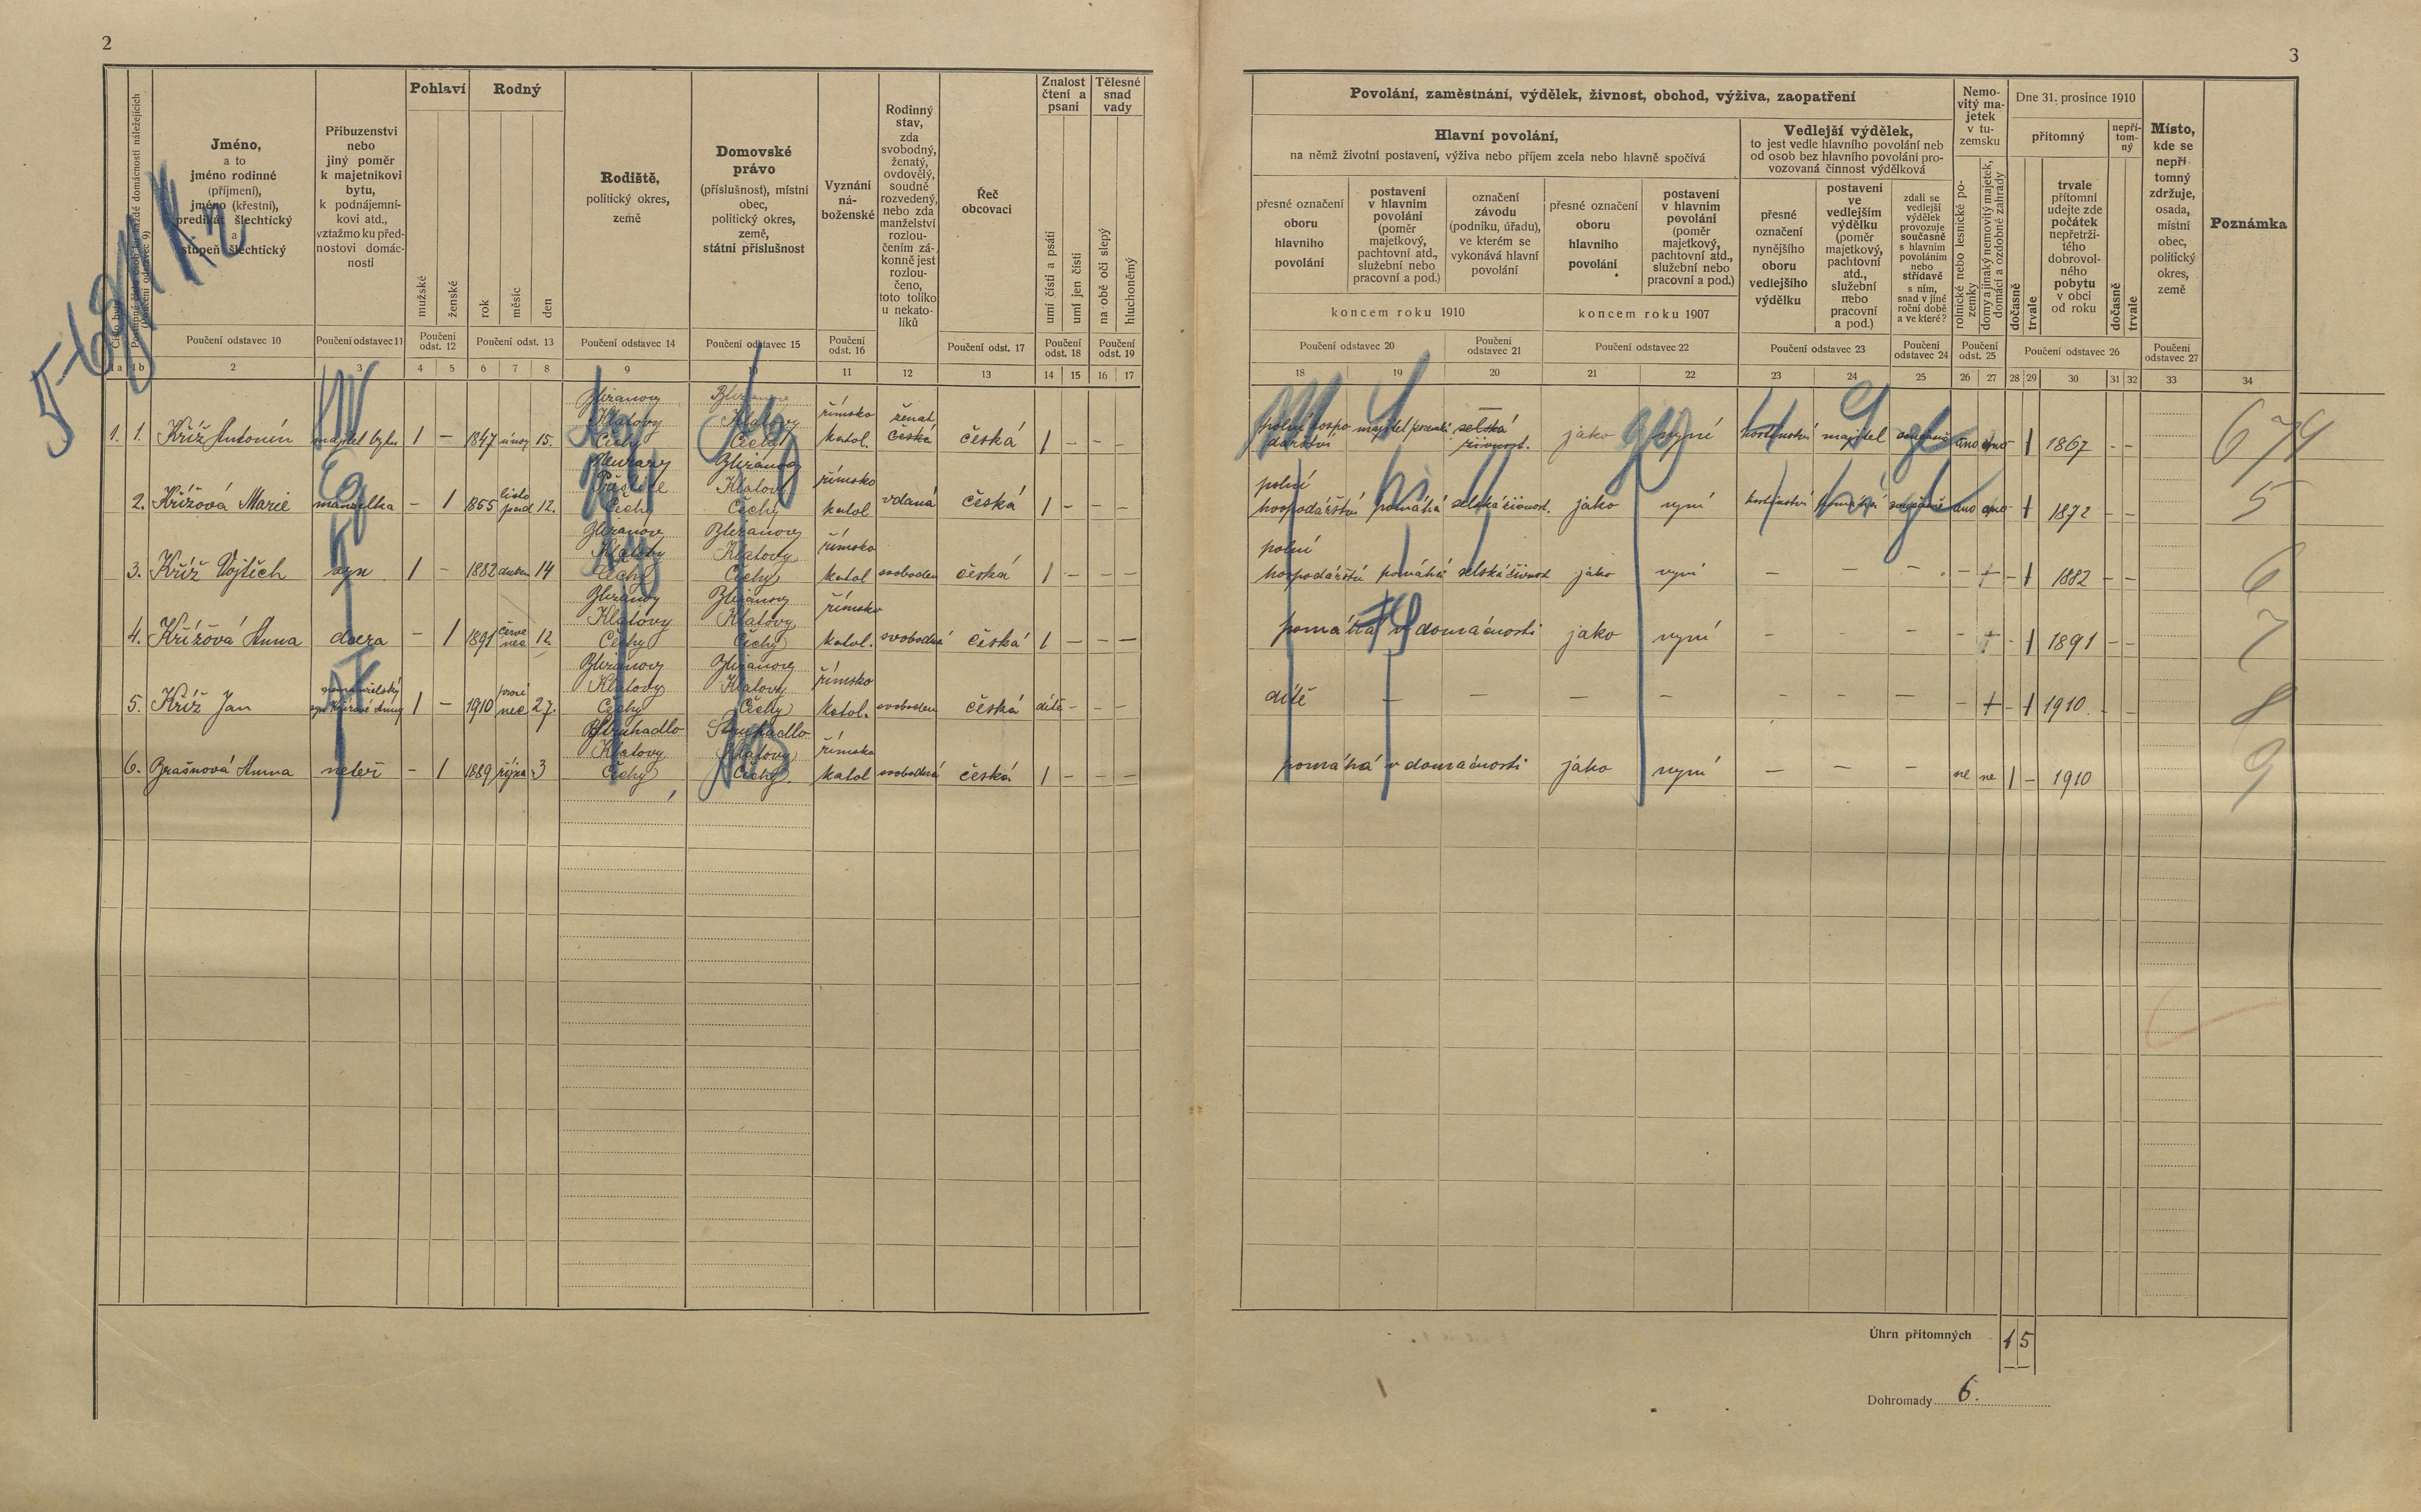 2
Pohlaví
Rodný
Znalost čtení a psaní
Tělesné snad vady
Jméno,
a to
jméno rodinné
(příjmení),
jméno (křestní),
predikát šlechtický
a
stupeň šlechtický
Příbuzenství
nebo
jiný poměr
k majetníkovi
bytu,
k podnájemní-
kovi atd.,
vztažmo ku před-
nostovi domác-
nosti
mužské
ženské
rok
měsíc
den
Rodiště,
politický okres,
země
Domovské
právo
(příslušnost), místní
obec,
politický okres,
země,
státní příslušnost
Vyznání
ná-
boženské
Rodinný
stav,
zda
svobodný,
ženatý,
ovdovělý,
soudně
rozvedený,
nebo zda
manželství
rozlou-
čením zá-
konně jest
rozlou-
čeno,
toto toliko
u nekato-
líků
Řeč
obcovací
umí čísti a psáti
umí jen čísti
na obě oči slepý
hluchoněmý
Poučení odstavec 10
Poučení odstavec 11
Poučení odst. 12
Poučení odst. 13
Poučení odstavec 14
Poučení odstavec 15
Poučení odst. 16
Poučení odst. 17
Poučení odst. 18
Poučení odst. 19
1a 1b 2 3 4 5 6 7 8 9 10 11 12 13 14 15 16 17
1. 1. Kříž Antonín majitel bytu 1 – 1847 únor 15. Klatovy Čechy Klatovy Čechy římsko katol. ženat česká 1 – – –
2. Křížová Marie manželka – 1 1855 listopad 12. Čechy Klatovy Čechy římsko katol vdaná česká 1 – – –
3. Kříž Vojtěch syn 1 – 1882 duben 14 Klatovy Čechy Klatovy Čechy římsko katol svoboden česká 1 – – –
4. Křížová Anna dcera – 1 1891 červenec 12. Klatovy Čechy Klatovy Čechy římsko katol. svobodná česká 1 – – –
5. Kříž Jan nemanželský syn Křížové Anny 1 – 1910 prosinec 27. Klatovy Čechy Klatovy Čechy římsko katol. svoboden česká dítě – – –
6. Brašnová Anna neteř – 1 1889 října 3 Struhadlo Klatovy Čechy Struhadlo Klatovy Čechy římsko katol svobodná česká 1 – – –
3
Povolání, zaměstnání, výdělek, živnost, obchod, výživa, zaopatření
Nemo-
vitý ma-
jetek
v tu-
zemsku
Dne 31. prosince 1910
Místo,
kde se
nepří
tomný
zdržuje,
osada,
místní
obec,
politický
okres,
země
Poznámka
Hlavní povolání,
na němž životní postavení, výživa nebo příjem zcela nebo hlavně spočívá
Vedlejší výdělek,
to jest vedle hlavního povolání neb
od osob bez hlavního povolání pro-
vozovaná činnost výdělková
přítomný
nepří-
tom-
ný
přesné označení
oboru
hlavního
povolání
postavení
v hlavním
povolání
(poměr
majetkový,
pachtovní atd.,
služební nebo
pracovní a pod.)
označení
závodu
(podniku, úřadu),
ve kterém se
vykonává hlavní
povolání
přesné označení
oboru
hlavního
povolání
postavení
v hlavním
povolání
(poměr
majetkový,
pachtovní atd.,
služební nebo
pracovní a pod.)
přesné
označení
nynějšího
oboru
vedlejšího
výdělku
postavení
ve
vedlejším
výdělku
(poměr
majetkový,
pachtovní
atd.,
služební
nebo
pracovní
a pod.)
zdali se
vedlejší
výdělek
provozuje
současně
s hlavním
povoláním
nebo
střídavě
s ním,
snad v jiné
roční době
a ve které?
rolnické nebo lesnické po-
zemky
domy a jinaký nemovitý majetek,
domácí a ozdobné zahrady
dočasně
trvale
trvale
přítomní
udejte zde
počátek
nepřetrži-
tého
dobrovol-
ného
pobytu
v obci
od roku
dočasně
trvale
koncem roku 1910
koncem roku 1907
Poučení odstavec 20
Poučení odstavec 21
Poučení odstavec 22
Poučení odstavec 23
Poučení odstavec 24
Poučení odst. 25
Poučení odstavec 26
Poučení odstavec 27
18 19 20 21 22 23 24 25 26 27 28 29 30 31 32 33 34
polní hospodářství majitel selská živnost. jako nyní hostinství majitel současně ano ano – 1 1867 – – 674
polní hospodářství pomáhá selská živnost. jako nyní hostinství pomáhá současně ano ano – 1 1872 – – 5
polní hospodářství pomáhá selská živnost jako nyní – – – – + – 1 1882 – – 6
pomáhá v domácnosti jako nyní – – – – + – 1 1891 – – 7
dítě – – – – – – – – + – 1 1910 – – 8
pomáhá v domácnosti jako nyní – – – ne ne 1 – 1910 9
Úhrn přítomných 1 5
Dohromady 6.